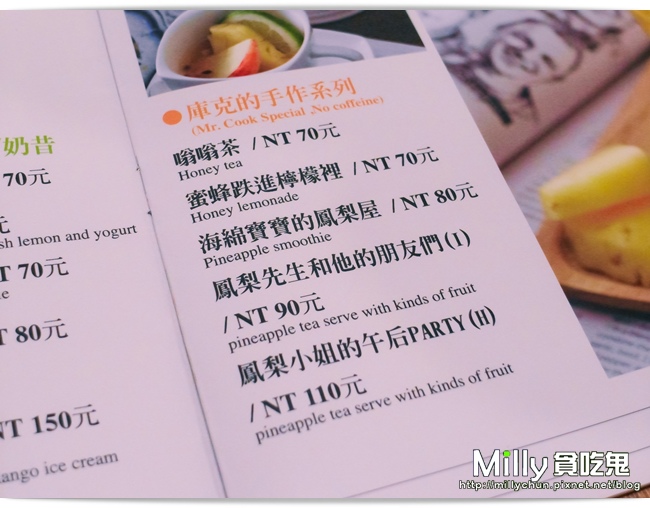 奶昔
70元
元
sh lemon and yogurt
T 70元
e
T 80元
NT 150元
ango ice cream
●庫克的手作系列
(Mr. Cook Special ,No coffeine)
嗡嗡茶 / NT 70元
Honey tea
蜜蜂跌進檸檬裡 / NT 70元
Honey lemonade
海綿寶寶的鳳梨屋 / NT 80元
Pineapple smoothie
鳳梨先生和他的朋友們(I)
/ NT 90元
pineapple tea serve with kinds of fruit
鳳梨小姐的午后PARTY(H)
/ NT 110元
pineapple tea serve with kinds of fruit
Milly 貪吃鬼
http://millychun.pixnet.net/blog